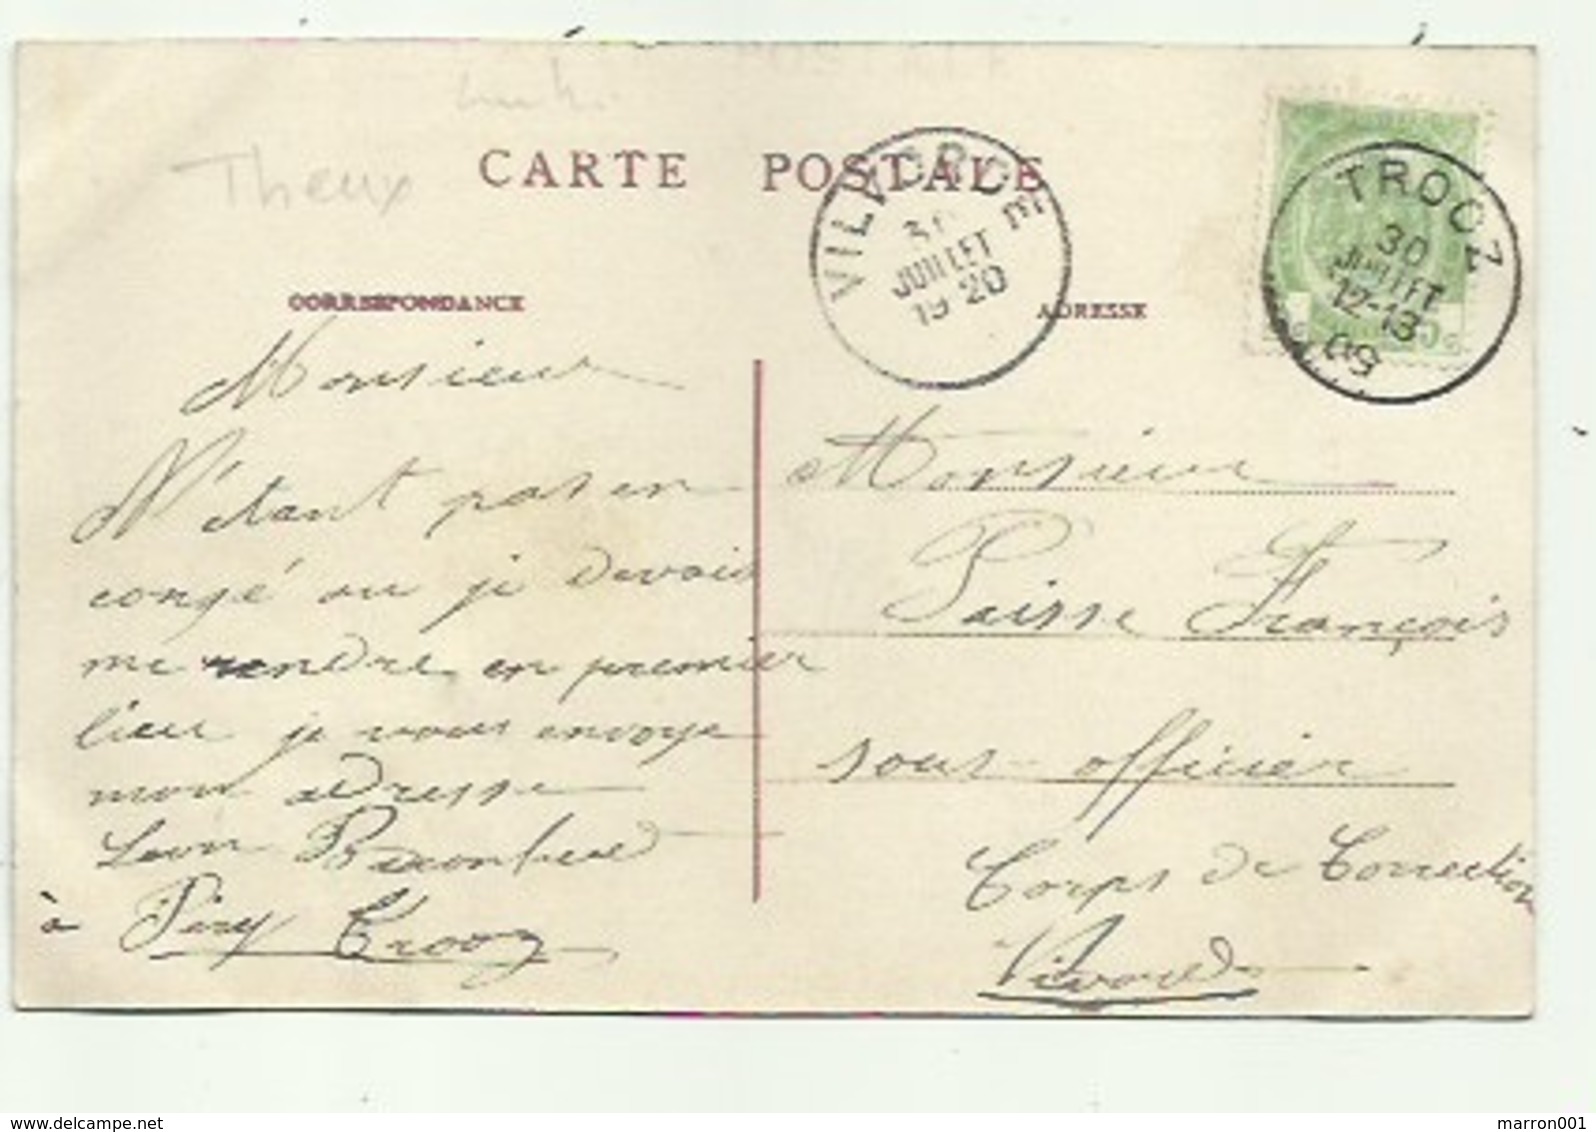 Theux
CARTE POSTALE
VILVORDE
30
JUILLET
19-20
TROOZ
30
JUILLET
12-13
09
5c
CORRESPONDANCE
ADRESSE
Monsieur
N'étant pas en
congé ou je devais
me rendre en premier
lieu je vous envoye
mon adresse
Leon
à Péry Trooz
Monsieur
Paisse François
sous-officier
Corps de Correction
Vivorde
www.delcampe.net
marron001